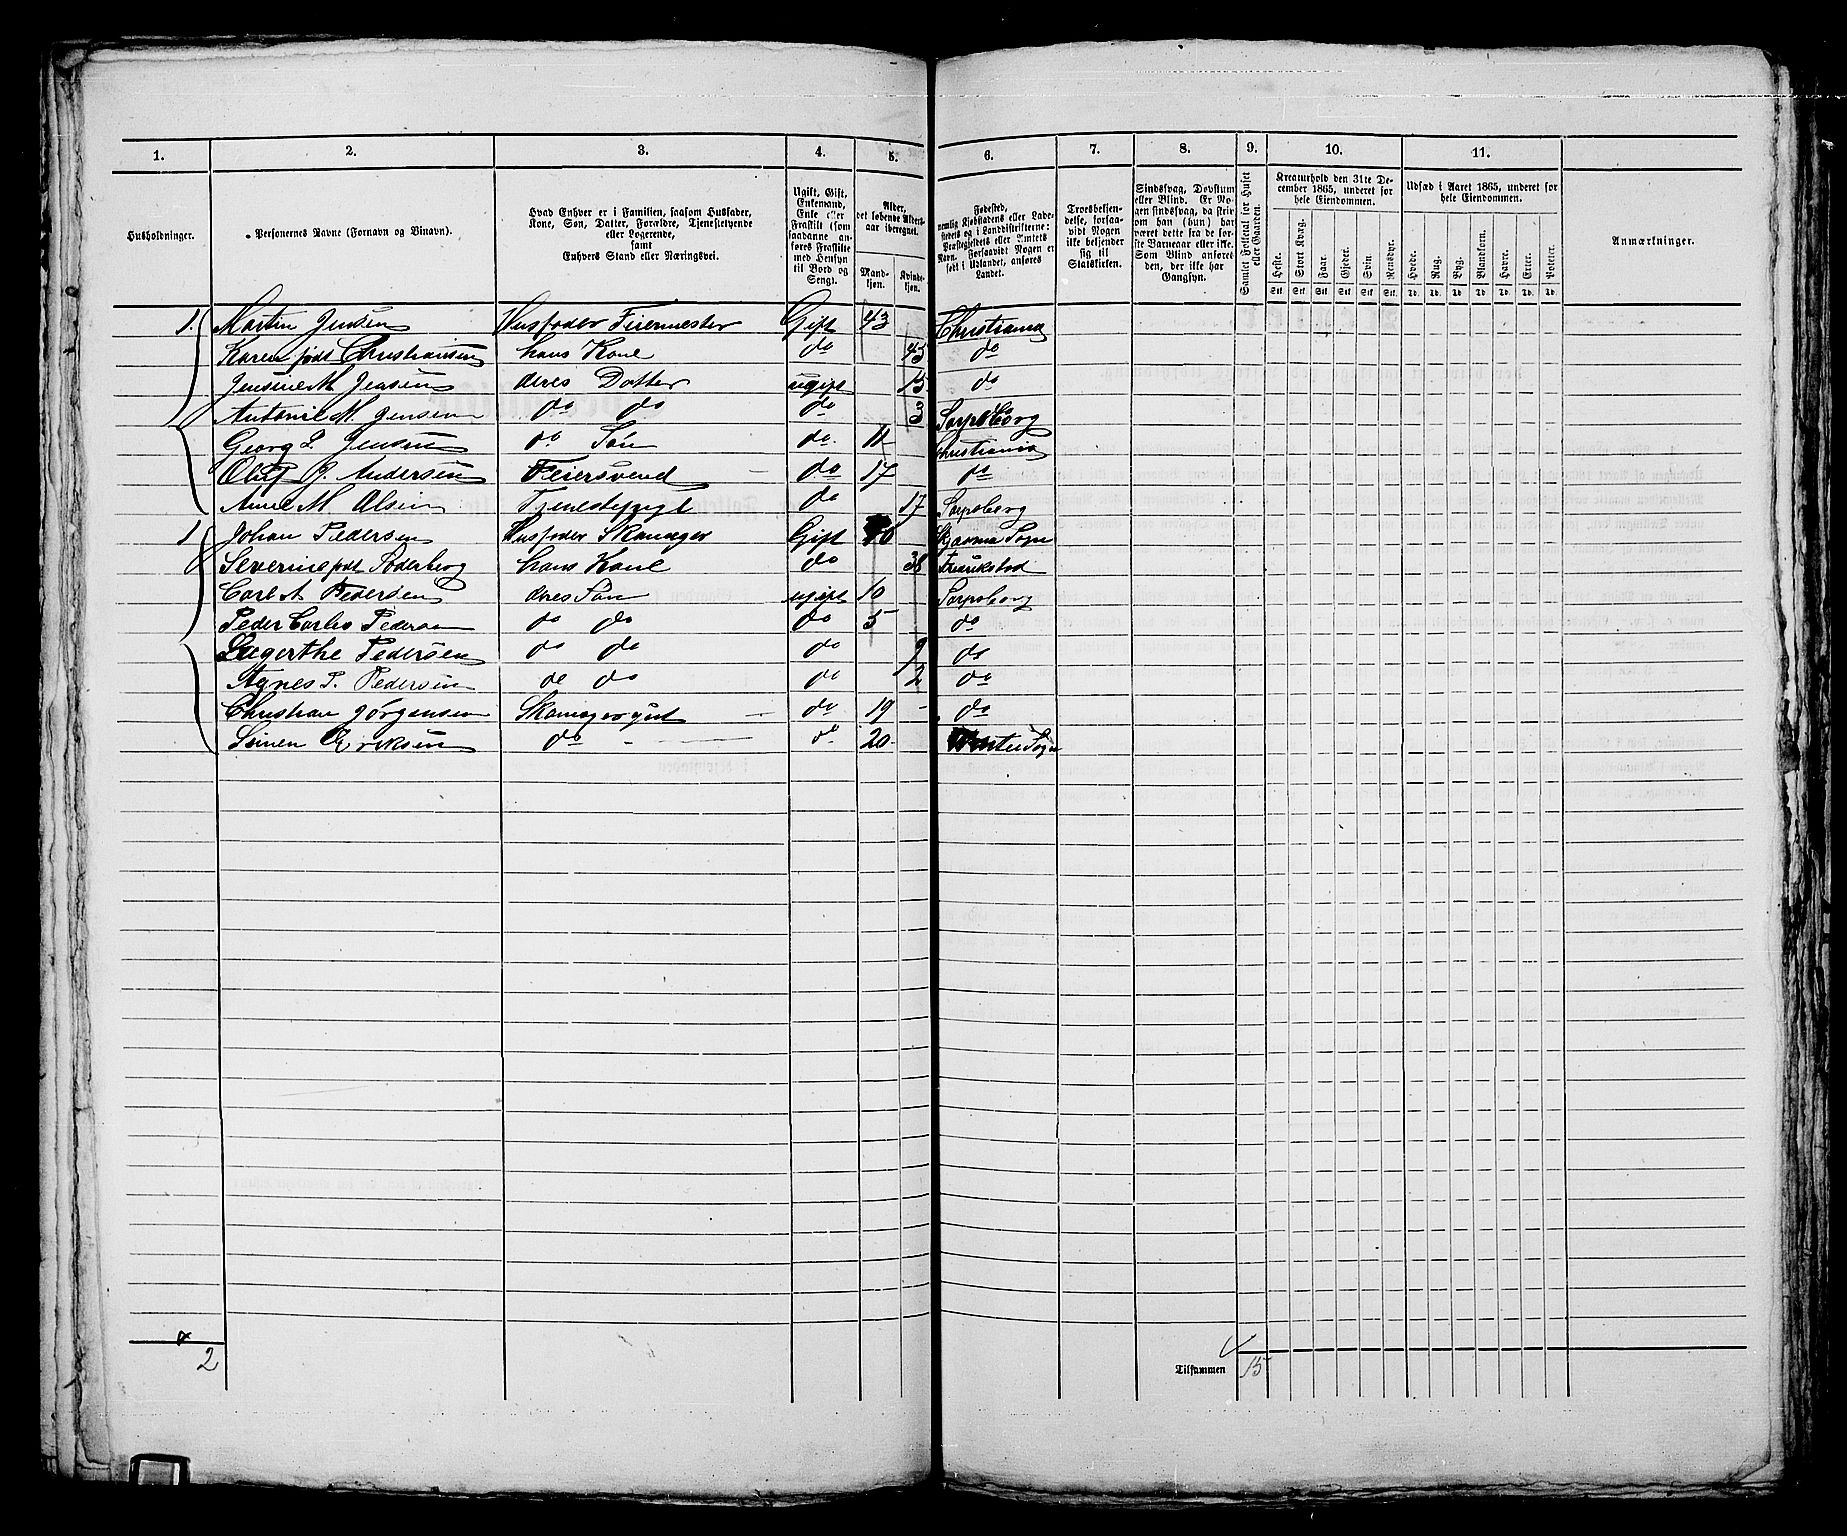 1. 2. 3. 4. 5. 6. 7. 8. 9. 10. 11.
Husholdninger.
Personernes Navne (Fornavn og Binavn).
Hvad Enhver er i Familien, saasom Husfader,
Kone, Søn, Datter, Forældre, Tjenestetyende
eller Logerende,
samt
Enhvers Stand eller Næringsvei.
Ugift, Gift,
Enkemand,
Enke eller
Fraskilt (som
saadanne an-
føres Fraskilte
med Hensyn
til Bord og
Seng).
Alder,
det løbende Alders-
aar iberegnet.
Mand-
kjøn.
Kvinde-
kjøn.
Fødested,
nemlig Kjøbstadens eller Lade-
stedets og i Landdistrikterne:
Præstegjeldets eller Amtets
Navn. Forsaavidt Nogen er
født i Udlandet, anføres
Landet.
Troesbekjen-
delse, forsaa-
vidt Nogen
ikke bekjender
sig til
Statskirken.
Sindssvag, Døvstum
eller Blind. Er No-
gen sindssvag, da skri-
ver han (hun) har
været dette fra de før-
ste Barneaar eller ikke.
Som Blind anføres
den, der ikke har
Gangsyn.
Samlet Folketal for Huset
eller Gaarden.
Kreaturhold den 31te De-
cember 1865, underet for
hele Eiendommen.
Heste. Stort Kvæg. Faar. Gjeder. Svin. Rensdyr.
Stk. Stk. Stk. Stk. Stk. Stk.
Udsæd i Aaret 1865, underet for
hele Eiendommen.
Hvede. Rug. Byg. Blandkorn. Havre. Erter. Poteter.
Td. Td. Td. Td. Td. Td. Td.
Anmærkninger.
1. Martin Jensen Husfader Feiermester Gift 43 Christiania
Karen født Christiansen hans Kone do 45 do
Jensine M Jensen deres Datter ugift 15 do
Antonie M. Jensen do do do 3 Sarpsborg
Georg L Jensen do Søn do 11 Christiania
Oluf G. Andersen Feiersvend do 17 do
Anne M Olsen Tjenestepige do 17 Sarpsborg
1 Johan Pedersen Husfader Skomager Gift 40 Sogn
Severine født Søderberg hans Kone do 38 Fredrikstad
Carl A Pedersen deres Søn ugift 10 Sarpsborg
Peder Carlso Pedersen do do do 5 do
Pedersen do do do 9 do
Agnes P. Pedersen do do do 2 do
Christian Jørgensen Skomagergut do 19 do
Simen Eriksen do do 20 Sogn
2
Tilsammen 15